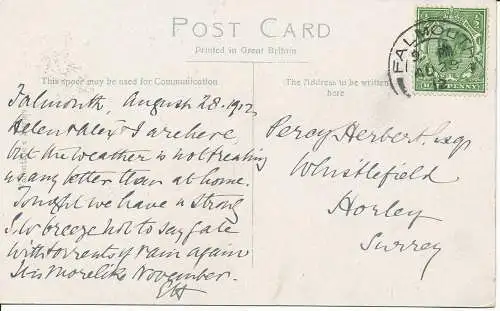 POST CARD
Printed in Great Britain
This space may be used for Communication
The Address to be written
here
FALMOUTH
AU 28
12
HALF PENNY
Falmouth, August 28. 1912
Helen & Alex & I are here,
but the weather is not treating
us any better than at home.
Tonight we have a strong
S.W breeze not to say gale
with torrents of rain again
It is more like November.
EH
Percy Herbert, Esq
Whistlefield
Horley
Surrey